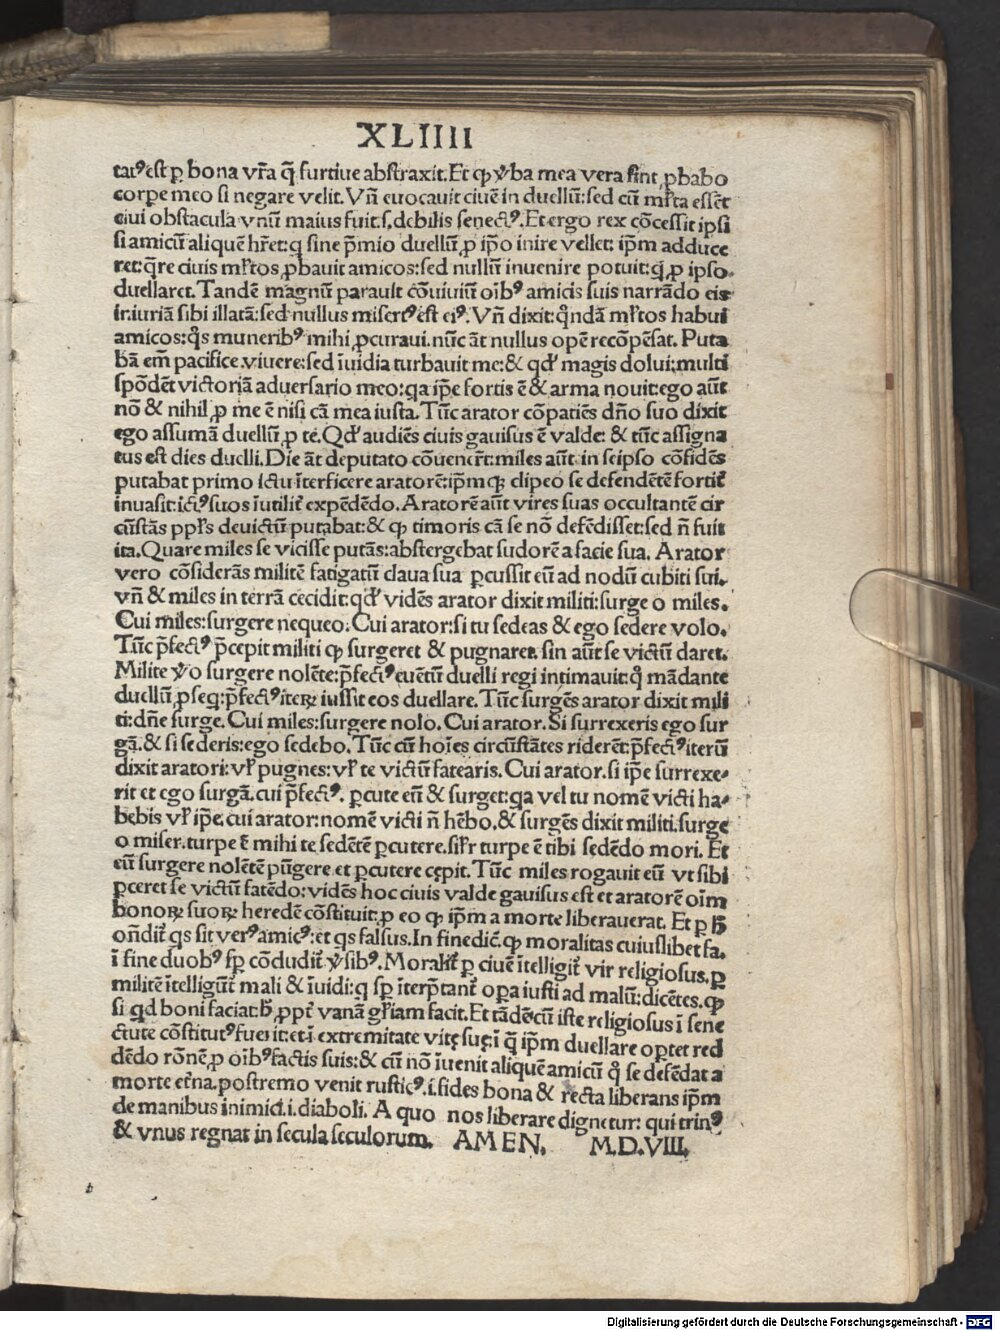 XLIIII
tatꝰ est ꝑ bona vr̄a q̄ furtiue abstraxit. Et ꝙ v̄ba mea vera sint, ꝓbabo
corpe meo si negare velit. Vn̄ euocauit ciuē in duellū: sed cū ml̄ta essēt
ciui obstacula vnū maius fuit .s. debilis senectꝰ. Et ergo rex cōcessit ipsi
si amicū aliquē hr̄et: q sine p̄mio duellū ꝓ ip̄o inire vellet: ip̄m adduce
ret: q̄re ciuis ml̄tos ꝓbauit amicos: sed nullū inuenire potuit: q̄ ꝓ ipso
duellaret. Tandē magnū parauit cōuiuiū oīb⁹ amicis suis narrādo eis
iniuriā sibi illatā: sed nullus misertꝰ est eiꝰ. Vn̄ dixit: q̄ndā ml̄tos habui
amicos: q̄s munerib⁹ mihi ꝓcuraui. nūc āt nullus opē recōpēsat. Puta
bā em̄ pacifice viuere: sed īuidia turbauit me: & qd' magis dolui: multi
spōdēt victoriā aduersario meo: qa ip̄e fortis ē & arma nouit: ego aūt
nō & nihil ꝓ me ē nisi cā mea iusta. Tūc arator cōpatiēs dn̄o suo dixit
ego assumā duellū ꝓ te. Qd' audiēs ciuis gauisus ē valde: & tūc assigna
tus est dies duelli. Die āt deputato cōuener̄t: miles aūt in seipso cōfidēs
putabat primo ictu īterficere aratorē: ip̄mqꝫ clipeo se defendētē fortit̄
inuasit: ictꝰ suos īutilit̄ expēdēdo. Aratorē aūt vires suas occultantē cir
cūstās ppl̄s deuictū putabat: & ꝙ timoris cā se nō defēdisset: sed n̄ fuit
ita. Quare miles se vicisse putās: abstergebat sudorē a facie sua. Arator
vero cōsiderās militē fatigatū claua sua ꝑcussit eū ad nodū cubiti sui.
vn̄ & miles in terrā cecidit: qd' vidēs arator dixit militi: surge o miles.
Cui miles: surgere nequeo. Cui arator: si tu sedeas & ego sedere volo.
Tūc p̄fectꝰ p̄cepit militi ꝙ surgeret & pugnaret. sin aūt se victū daret.
Milite v̄o surgere nolēte: p̄fectꝰ euētū duelli regi intimauit: q̄ mādante
duellū ꝓseq: p̄fectꝰ iteꝝ iussit eos duellare. Tūc surgēs arator dixit mili
ti: dn̄e surge. Cui miles: surgere nolo. Cui arator. Si surrexeris ego sur
gā. & si sederis: ego sedebo. Tūc cū hoīes circūstātes riderēt: p̄fectꝰ iterū
dixit aratori: vl̄ pugnes: vl̄ te victū fatearis. Cui arator. si ip̄e surrexe
rit et ego surgā. cui p̄fectꝰ. ꝑcute eū & surget: qa vel tu nomē victi ha
bebis vl̄ ip̄e. cui arator: nomē victi n̄ hēbo. & surgēs dixit militi. surge
o miser. turpe ē mihi te sedētē ꝑcutere. sil̄r turpe ē tibi sedēdo mori. Et
eū surgere nolētē pūgere et ꝑcutere cępit. Tūc miles rogauit eū vt sibi
ꝑceret se victū fatēdo: vidēs hoc ciuis valde gauisus est et aratorē oīm
bonoꝝ suoꝝ heredē cōstituit: ꝓ eo ꝙ ip̄m a morte liberauerat. Et ꝑ h̄
on̄dit̄ q̄s sit verꝰ amicꝰ: et q̄s falsus. In fine dic̄. ꝙ moralitas cuiuslibet fa.
ī fine duob⁹ sp̄ cōcludit̄ v̄sib⁹. Moralit̄ ꝑ ciuē ītelligit̄ vir religiosus. ꝑ
militē ītelligūt̄ mali & īuidi: q sp̄ īterp̄tant̄ opa iusti ad malū: dicētes. ꝙ
si qd boni faciat: h̄ ꝓpt̄ vanā gl̄iam facit. Et tādē cū iste religiosus ī sene
ctute cōstitutꝰ fuerit: et ī extremitate vitę suę: ī q̄ ip̄m duellare oꝑtet red
dēdo rōnē ꝓ oīb⁹ factis suis: & cū nō īuenit aliquē amicū q̄ se defēdat a
morte et̄na. postremo venit rusticꝰ. i. fides bona & recta liberans ip̄m
de manibus inimici. i. diaboli. A quo nos liberare dignetur: qui trinꝰ
& vnus regnat in secula seculorum. AMEN. M.D.VIII.
Digitalisierung gefördert durch die Deutsche Forschungsgemeinschaft - DFG